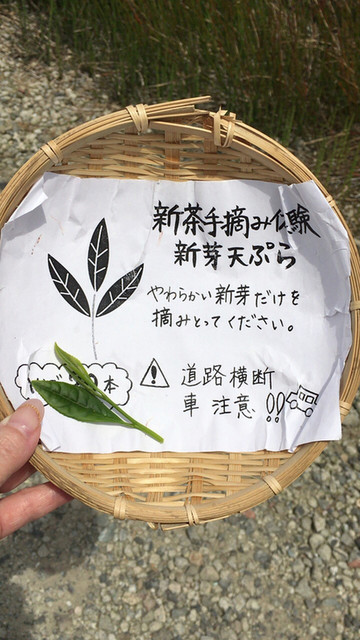 新茶手摘み体験
新芽天ぷら
やわらかい新芽だけを
摘みとってください。
本
道路横断
車 注意!!